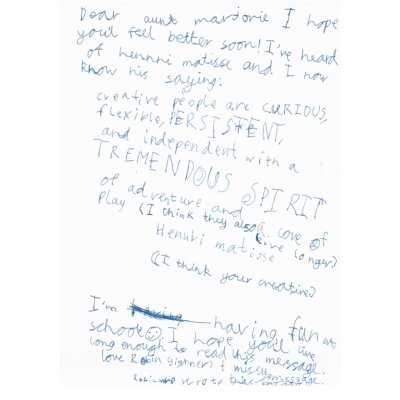 Dear aunt marjorie I hope
you'll feel better soon! I've heard
of hennri matisse and I now
know his saying:
creative people are CURIOUS,
flexible, PERSISTENT,
and independent with a
TREMENDOUS SPIRIT
of adventure and a love of
play (I think they also live longer)
Hennri matisse
(I think your creative)
I'm having fun at
school I hope you'll live
long enough to read this message.
love Robin